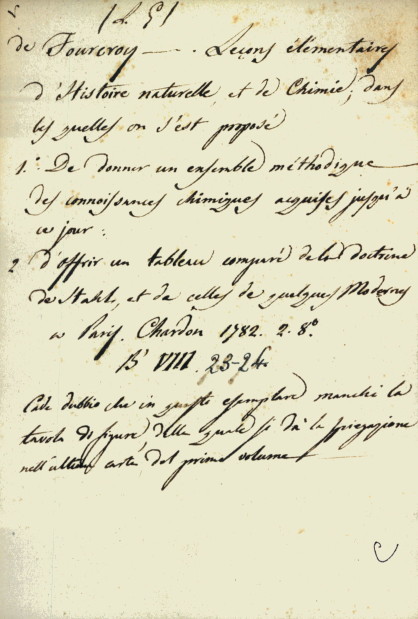 de Fourcroy — . Leçons élémentaires
d'Histoire naturelle, et de Chimie; dans
les quelles on s'est proposé
1.° De donner un ensemble méthodique
des connoissances chimiques acquises jusqu'à
ce jour:
2 d'offrir un tableau comparé de la doctrine
de Stahl, et de celles de quelques Modernes
a Paris. Chardon 1782. 2. 8.°
B' VIII. 23-24.
Cade dubbio che in questo esemplare manchi la
tavola di figure, della quale si dà la spiegazione
nell'ultima carta del primo volume
C